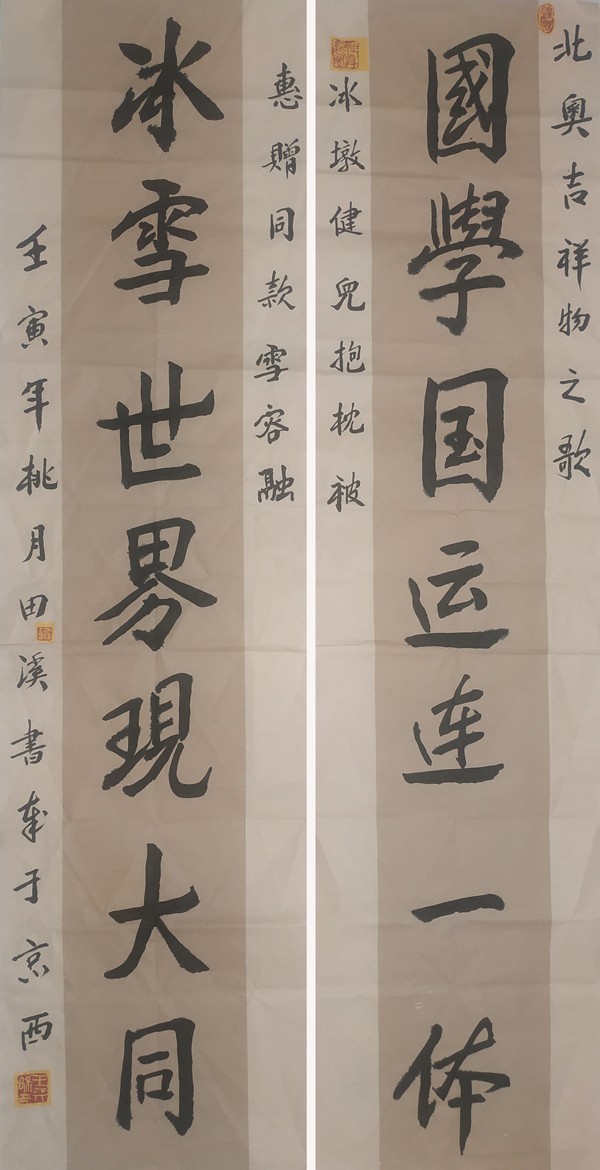 北奥吉祥物之歌
國學国运连一体
冰墩健兒抱枕被
惠贈同款雪容融
冰雪世界現大同
壬寅年桃月田溪書奉于京西